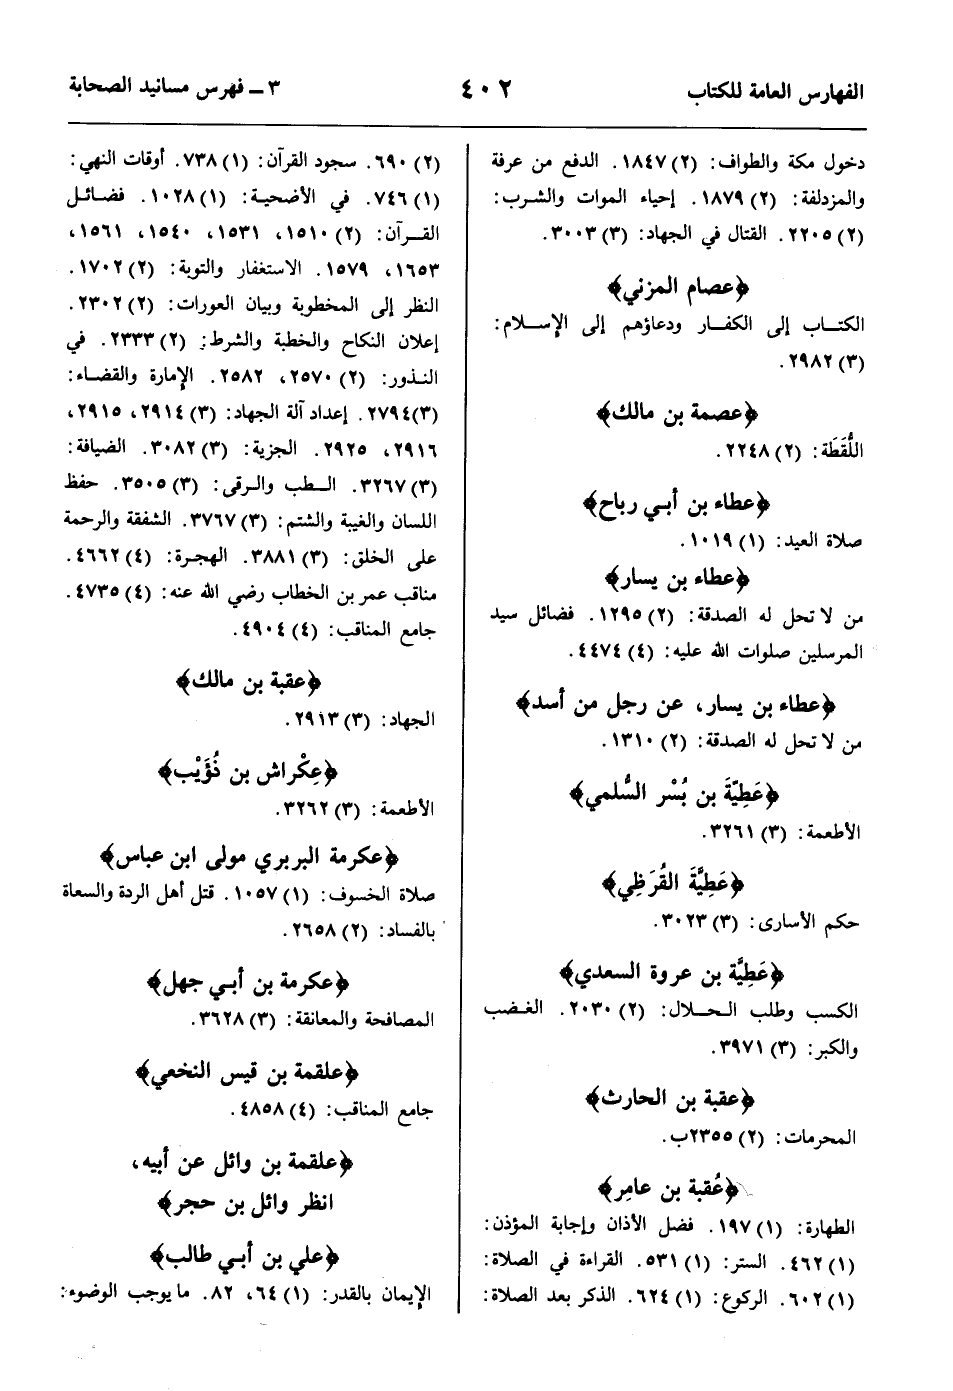 الفهارس العامة للكتاب
٤٠٢
٣ ـ فهرس مسانيد الصحابة
دخول مكة والطواف: (٢) ١٨٤٧. الدفع من عرفة
والمزدلفة: (٢) ١٨٧٩. إحياء الموات والشرب:
(٢) ٢٢٠٥. القتال في الجهاد: (٣) ٣٠٠٣.
﴿عصام المزني﴾
الكتــاب إلى الكفــار ودعاؤهم إلى الإســلام:
(٣) ٢٩٨٢.
﴿عصمة بن مالك﴾
اللُّقَطَة: (٢) ٢٢٤٨.
﴿عطاء بن أبـي رباح﴾
صلاة العيد: (١) ١٠١٩.
﴿عطاء بن يسار﴾
من لا تحل له الصدقة: (٢) ١٢٩٥. فضائل سيد
المرسلين صلوات الله عليه: (٤) ٤٤٧٤.
﴿عطاء بن يسار، عن رجل من أسد﴾
من لا تحل له الصدقة: (٢) ١٣١٠.
﴿عَطِيّةَ بن بُسْر السُّلمي﴾
الأطعمة: (٣) ٣٢٦١.
﴿عَطِيَّةَ القُرَظِي﴾
حكم الأسارى: (٣) ٣٠٢٣.
﴿عَطِيَّة بن عروة السعدي﴾
الكسب وطلب الـحـلال: (٢) ٢٠٣٠. الغـضب
والكبر: (٣) ٣٩٧١.
﴿عقبة بن الحارث﴾
المحرمات: (٢) ٢٣٥٥ب.
﴿عُقبة بن عامِر﴾
الطهارة: (١) ١٩٧. فضل الأذان وإجابة المؤذن:
(١) ٤٦٢. الستر: (١) ٥٣١. القراءة في الصلاة:
(١) ٦٠٢. الركوع: (١) ٦٢٤. الذكر بعد الصلاة:
(٢) ٦٩٠. سجود القرآن: (١) ٧٣٨. أوقات النهي:
(١) ٧٤٦. في الأضحيـة: (١) ١٠٢٨. فضائـل
القــرآن: (٢) ١٥١٠، ١٥٣١، ١٥٤٠، ١٥٦١،
١٦٥٣، ١٥٧٩. الاستغفار والتوبة: (٢) ١٧٠٢.
النظر إلى المخطوبة وبيان العورات: (٢) ٢٣٠٢.
إعلان النكاح والخطبة والشرط: (٢) ٢٣٣٣. في
النـذور: (٢) ٢٥٧٠، ٢٥٨٢. الإمارة والقضاء:
(٣) ٢٧٩٤. إعداد آلة الجهاد: (٣) ٢٩١٤، ٢٩١٥،
٢٩١٦، ٢٩٢٥. الجزية: (٣) ٣٠٨٢. الضيافة:
(٣) ٣٢٦٧. الـطب والـرقى: (٣) ٣٥٠٥. حفظ
اللسان والغيبة والشتم: (٣) ٣٧٦٧. الشفقة والرحمة
على الخلق: (٣) ٣٨٨١. الهجرة: (٤) ٤٦٦٢.
مناقب عمر بن الخطاب رضي الله عنه: (٤) ٤٧٣٥.
جامع المناقب: (٤) ٤٩٠٤.
﴿عقبة بن مالك﴾
الجهاد: (٣) ٢٩١٣.
﴿عِكْراش بن ذُؤَيْب﴾
الأطعمة: (٣) ٣٢٦٢.
﴿عكرمة البربري مولى ابن عباس﴾
صلاة الخسوف: (١) ١٠٥٧. قتل أهل الردة والسعاة
بالفساد: (٢) ٢٦٥٨.
﴿عكرمة بن أبـي جهل﴾
المصافحة والمعانقة: (٣) ٣٦٢٨.
﴿علقمة بن قيس النخعي﴾
جامع المناقب: (٤) ٤٨٥٨.
﴿علقمة بن وائل عن أبيه،
انظر وائل بن حجر﴾
﴿علي بن أبـي طالب﴾
الإيمان بالقدر: (١) ٦٤، ٨٢. ما يوجب الوضوء: